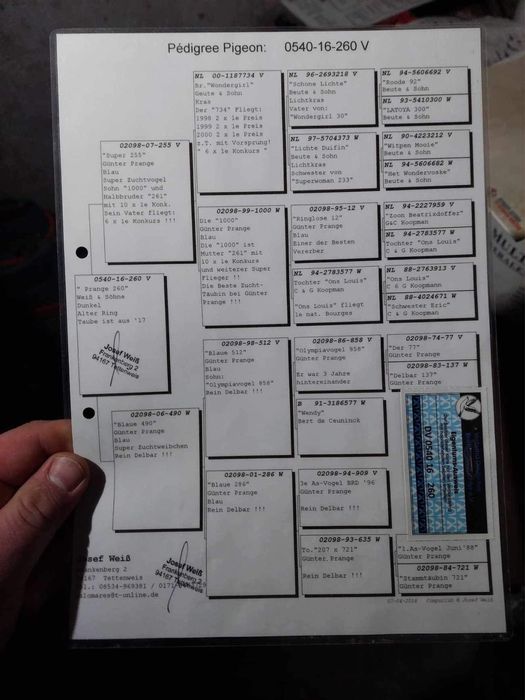 Pédigree Pigeon: 0540-16-260 V
0540-16-260 V
" Prange 260"
Weiß & Söhne
Dunkel
Alter Ring
Taube ist aus '17
Josef Weiß
Frankenberg 2
94167 Tettenweis
02098-07-255 V
"Super 255"
Günter Prange
Blau
Super Zuchtvogel
Sohn "1000" und
Halbbruder "261"
mit 10 x 1e Konk.
Sein Vater fliegt:
6 x 1e Konkurs !!!
02098-06-490 W
"Blaue 490"
Günter Prange
Blau
Super Zuchtweibchen
Rein Delbar !!!
NL 00-1187734 V
Br."Wondergirl"
Geute & Sohn
Kras
Der "734" Fliegt:
1998 2 x 1e Preis
1999 2 x 1e Preis
2000 2 x 1e Preis
z.T. mit Vorsprung!
" 6 x 1e Konkurs "
02098-99-1000 W
Die "1000"
Günter Prange
Blau
Die "1000" ist
Mutter "261" mit
10 x 1e Konkurs
und weiterer Super
Flieger !!
Die Beste Zucht-
Täubin bei Günter
Prange !!!
02098-98-512 V
"Blaue 512"
Günter Prange
Blau
Sohn:
"Olympiavogel 858"
Rein Delbar !!!
02098-01-286 W
"Blaue 286"
Günter Prange
Blau
Rein Delbar !!!
NL 96-2693218 V
"Schone Lichte"
Beute & Sohn
Lichtkras
Vater von:
"Wondergirl 30"
NL 97-5704373 W
"Lichte Duifin"
Beute & Sohn
Lichtkras
Schwester von
"Superwoman 233"
02098-95-12 V
"Ringlose 12"
Günter Prange
Blau
Einer der Besten
Vererber
NL 94-2783577 W
Tochter "Ons Louis"
C & G Koopman
"Ons Louis" fliegt
1e nat. Bourges
02098-86-858 V
"Olympiavogel 858"
Günter Prange
Er war 3 Jahre
hintereinander
B 91-3186577 W
"Wendy"
Bert de Ceuninck
02098-94-909 V
3e As-Vogel BRD '96
Günter Prange
Rein Delbar !!!
02098-93-635 W
To."207 x 721"
Günter Prange
Rein Delbar !!!
NL 94-5606692 V
"Roode 92"
Beute & Sohn
NL 93-5410300 W
"LATOYA 300"
Beute & Sohn
NL 90-4223212 V
"Witpen Mooie"
Beute & Sohn
NL 94-5606682 W
"Het Wondervoske"
Beute & Sohn
NL 94-2227959 V
"Zoon Beatrixdoffer"
G&C Koopman
NL 94-2783577 W
Tochter "Ons Louis"
C & G Koopman
NL 88-2763913 V
"Ons Louis"
C & G Koopmann
NL 88-4024671 W
"Schwester Eric"
C & G Koopmann
02098-74-77 V
"Der 77"
Günter Prange
02098-83-137 W
"Delbar 137"
Günter Prange
DV 0540 16 260
"1.As-Vogel Juni'88"
Günter Prange
02098-84-721 W
"Stammtäubin 721"
Günter Prange
Josef Weiß
Frankenberg 2
94167 Tettenweis
Josef Weiß
ankenberg 2
167 Tettenweis
l.: 08534-969381 / 0171
lomares@t-online.de
Compuclub © Josef Weiß